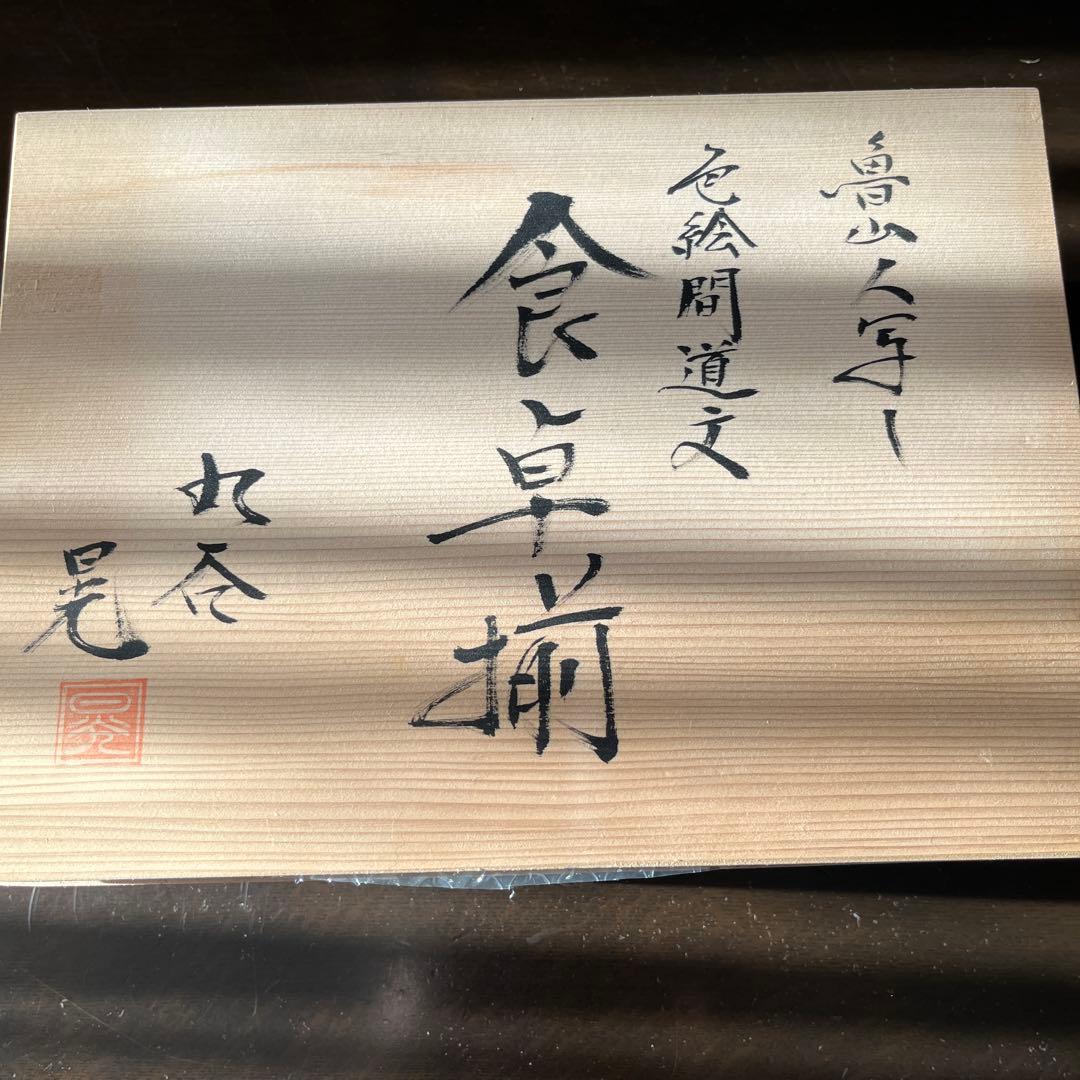 魯山人写し
色絵間道文
食卓揃
九谷
晃
晃